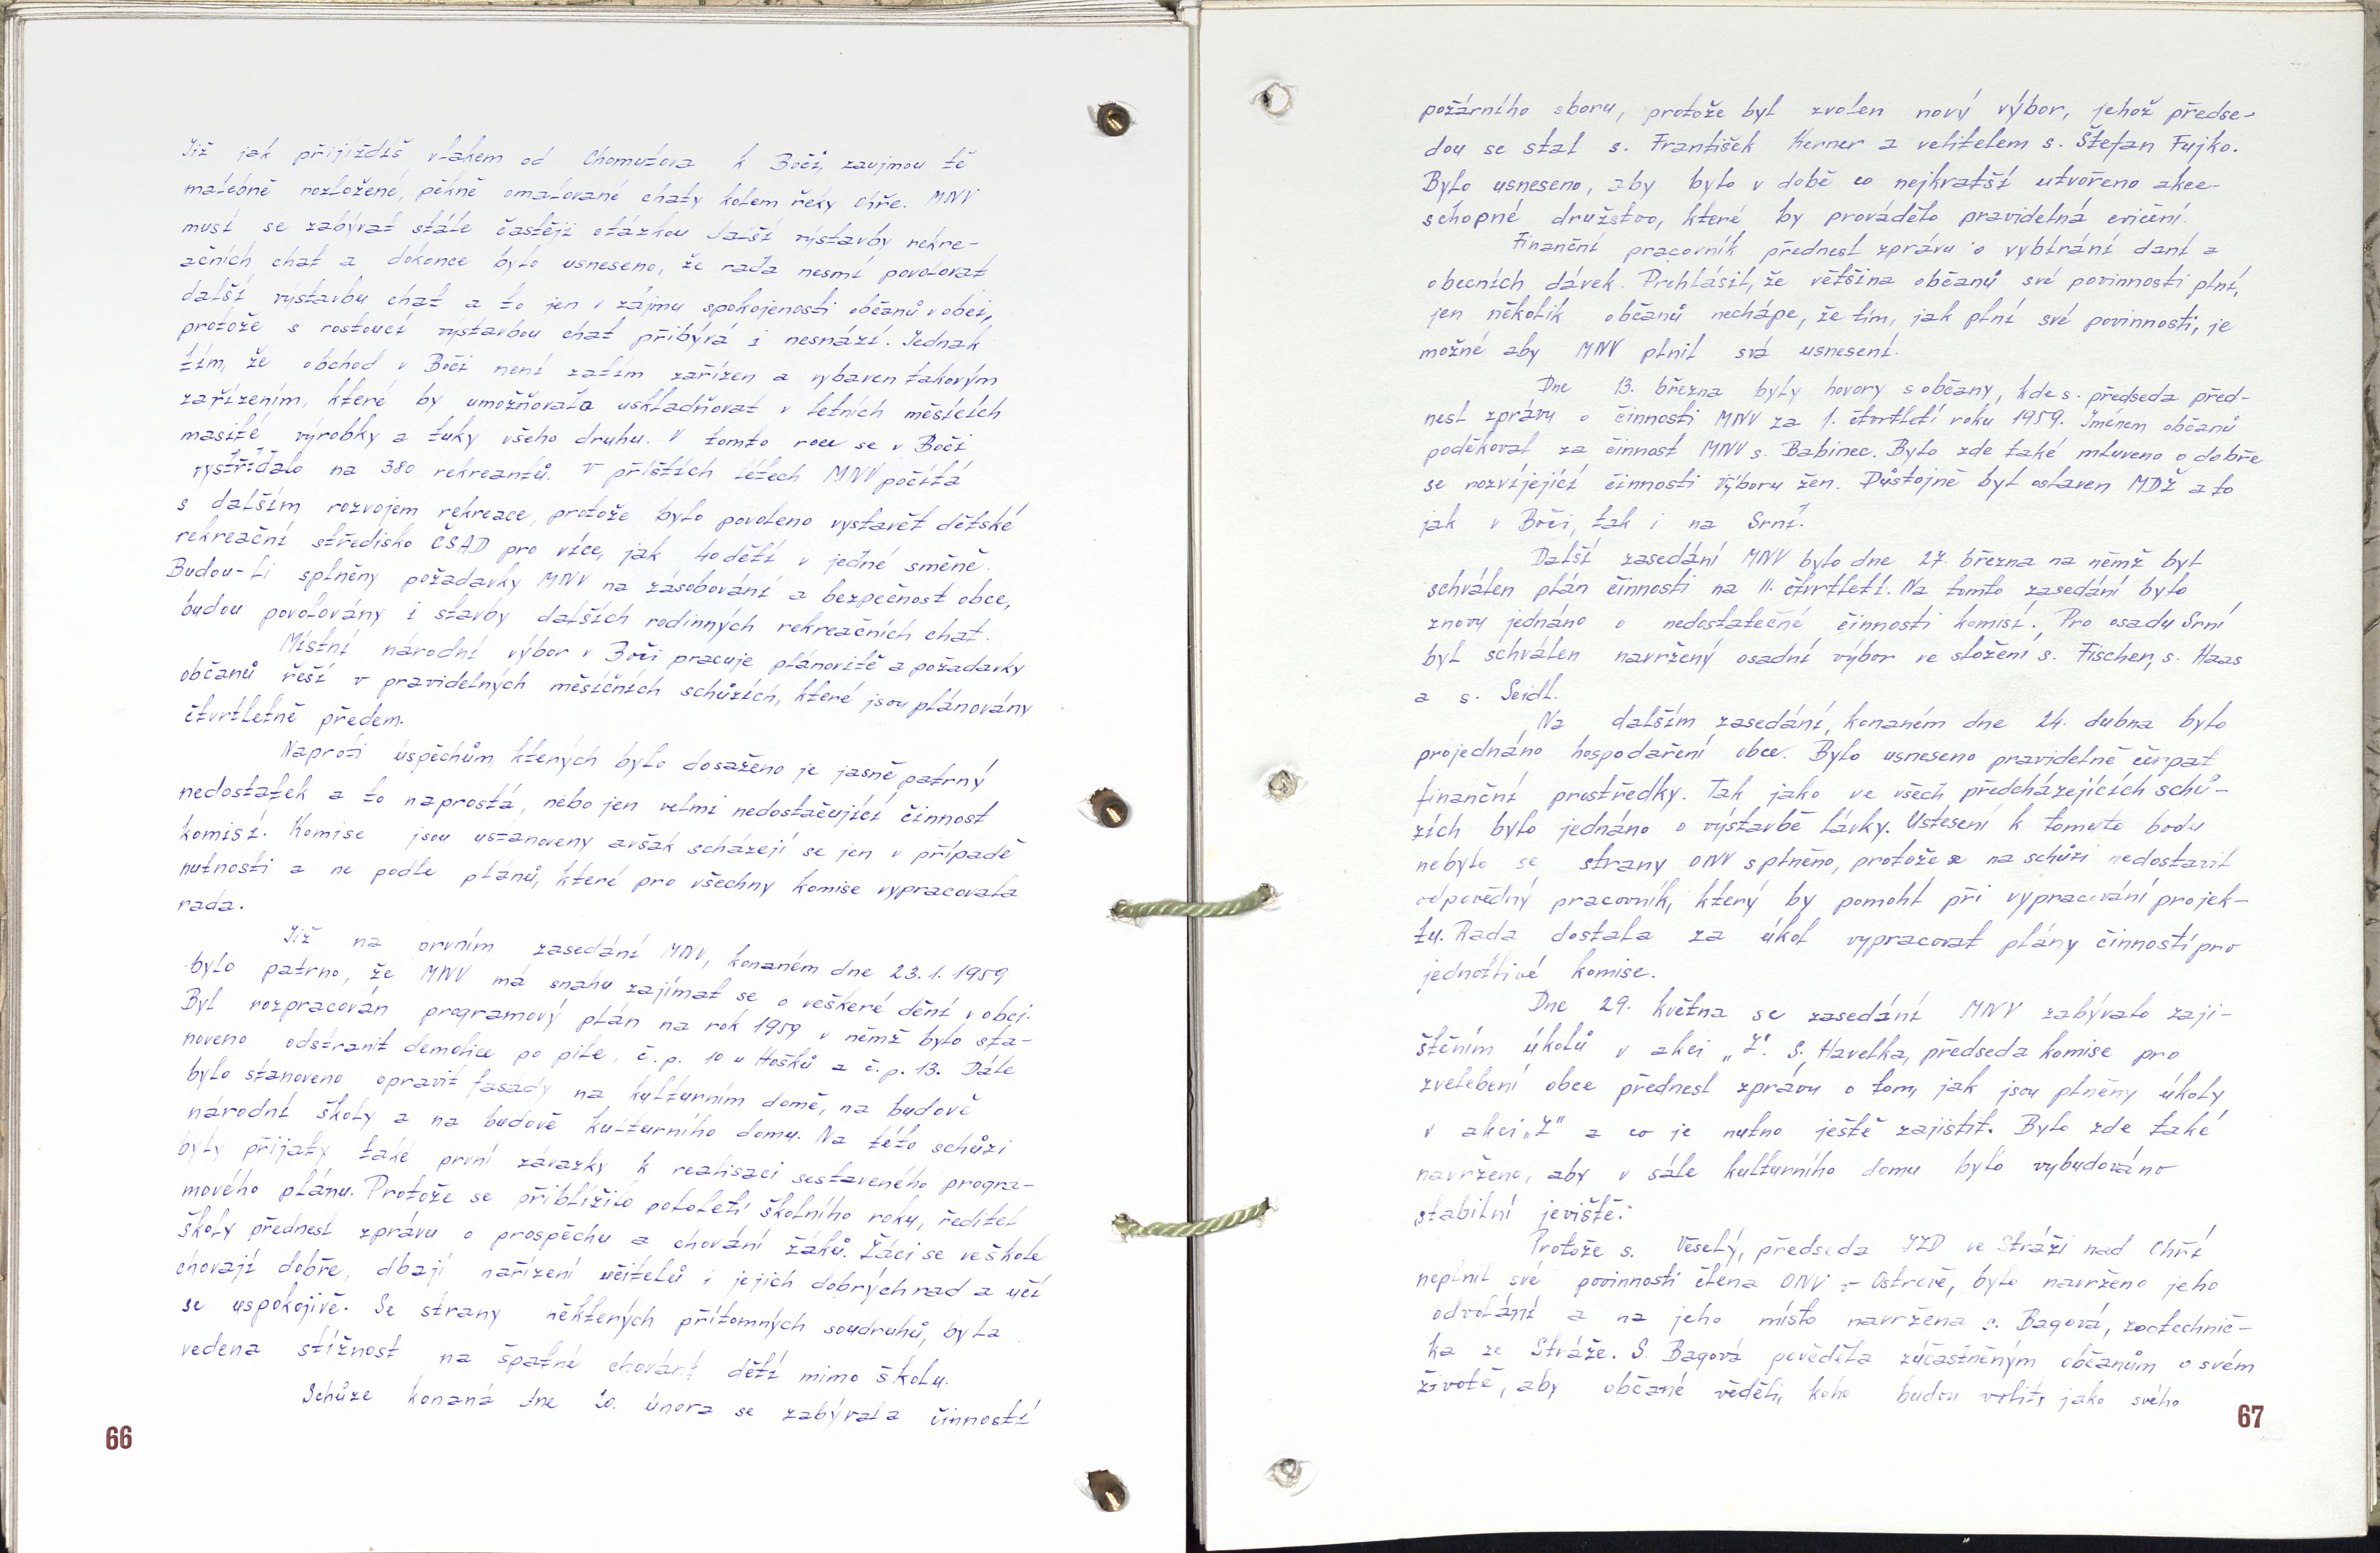 Již jak přijíždíš vlakem od Chomutova k Boči, zaujmou tě
malebně rozložené, pěkně omalované chaty kolem řeky Ohře. MNV
musí se zabývat stále častěji otázkou další výstavby rekre-
ačních chat a dokonce bylo usneseno, že rada nesmí povolovat
další výstavbu chat a to jen v zájmu spokojenosti občanů v obci,
protože s rostoucí výstavbou chat přibývá i nesnází. Jednak
tím, že obchod v Boči není zatím zařízen a vybaven takovým
zařízením, které by umožňovalo uskladňovat v letních měsících
masité výrobky a tuky všeho druhu. V tomto roce se v Boči
vystřídalo na 380 rekreantů. V příštích létech MNV počítá
s dalším rozvojem rekreace, protože bylo povoleno vystavět dětské
rekreační středisko ČSAD pro více, jak 40 dětí v jedné směně.
Budou-li splněny požadavky MNV na zásobování a bezpečnost obce,
budou povolovány i stavby dalších rodinných rekreačních chat.
Místní národní výbor v Boči pracuje plánovitě a požadavky
občanů řeší v pravidelných měsíčních schůzích, které jsou plánovány
čtvrtletně předem.
Naproti úspěchům, kterých bylo dosaženo je jasně patrný
nedostatek a to naprostá, nebo jen velmi nedostačující činnost
komisí. Komise jsou ustanoveny avšak scházejí se jen v případě
nutnosti a ne podle plánů, které pro všechny komise vypracovala
rada.
Již na prvním zasedání MNV, konaném dne 23. 1. 1959
bylo patrno, že MNV má snahu zajímat se o veškeré dění v obci.
Byl rozpracován programový plán na rok 1959 v němž bylo sta-
noveno odstranit demolice po pile, č.p. 10 u Hošků a č.p. 13. Dále
bylo stanoveno opravit fasády na kulturním domě, na budově
národní školy a na budově kulturního domu. Na této schůzi
byly přijaty také první závazky k realisaci sestaveného progra-
mového plánu. Protože se přiblížilo pololetí školního roku, ředitel
školy přednesl zprávu o prospěchu a chování žáků. Žáci se ve škole
chovají dobře, dbají nařízení učitelů i jejich dobrých rad a učí
se uspokojivě. Se strany některých přítomných soudruhů, byla
vedena stížnost na špatné chování dětí mimo školu.
Schůze konaná dne 20. února se zabývala činností
66
požárního sboru, protože byl zvolen nový výbor, jehož předse-
dou se stal s. František Kerner a velitelem s. Štefan Fujko.
Bylo usneseno, aby bylo v době co nejkratší utvořeno akce-
schopné družstvo, které by provádělo pravidelná cvičení.
Finanční pracovník přednesl zprávu o vybírání daní a
obecních dávek. Prohlásil, že většina občanů své povinnosti plní,
jen několik občanů nechápe, že tím, jak plní své povinnosti, je
možné aby MNV plnil svá usnesení.
Dne 13. března byly hovory s občany, kde s. předseda před-
nesl zprávu o činnosti MNV za 1. čtvrtletí roku 1959. Jménem občanů
poděkoval za činnost MNV s. Babinec. Bylo zde také mluveno o dobře
se rozvíjející činnosti Výboru žen. Důstojně byl oslaven MDŽ a to
jak v Boči, tak i na Srní.
Další zasedání MNV bylo dne 27. března na němž byl
schválen plán činnosti na II. čtvrtletí. Na tomto zasedání bylo
znovu jednáno o nedostatečné činnosti komisí. Pro osadu Srní
byl schválen navržený osadní výbor ve složení s. Fischer, s. Haas
a s. Seidl.
Na dalším zasedání, konaném dne 24. dubna bylo
projednáno hospodaření obce. Bylo usneseno pravidelně čerpat
finanční prostředky. Tak jako ve všech předcházejících schů-
zích bylo jednáno o výstavbě lávky. k tomuto bodu
nebylo se strany ONV splněno, protože se na schůzi nedostavil
odpovědný pracovník, který by pomohl při vypracování projek-
tu. Rada dostala za úkol vypracovat plány činností pro
jednotlivé komise.
Dne 29. května se zasedání MNV zabývalo zaji-
štěním úkolů v akci „Z". S. Havelka, předseda komise pro
zvelebení obce přednesl zprávu o tom, jak jsou plněny úkoly
v akci „Z" a co je nutno ještě zajistit. Bylo zde také
navrženo, aby v sále kulturního domu bylo vybudováno
stabilní jeviště.
Protože s. Veselý, předseda JZD ve Stráži nad Ohří
neplnil své povinnosti člena ONV v Ostrově, bylo navrženo jeho
odvolání a na jeho místo navržena s. Bagová, zootechnič-
ka ze Stráže. S. Bagová pověděla zúčastněným občanům o svém
životě, aby občané věděli, koho budou volit, jako svého
67